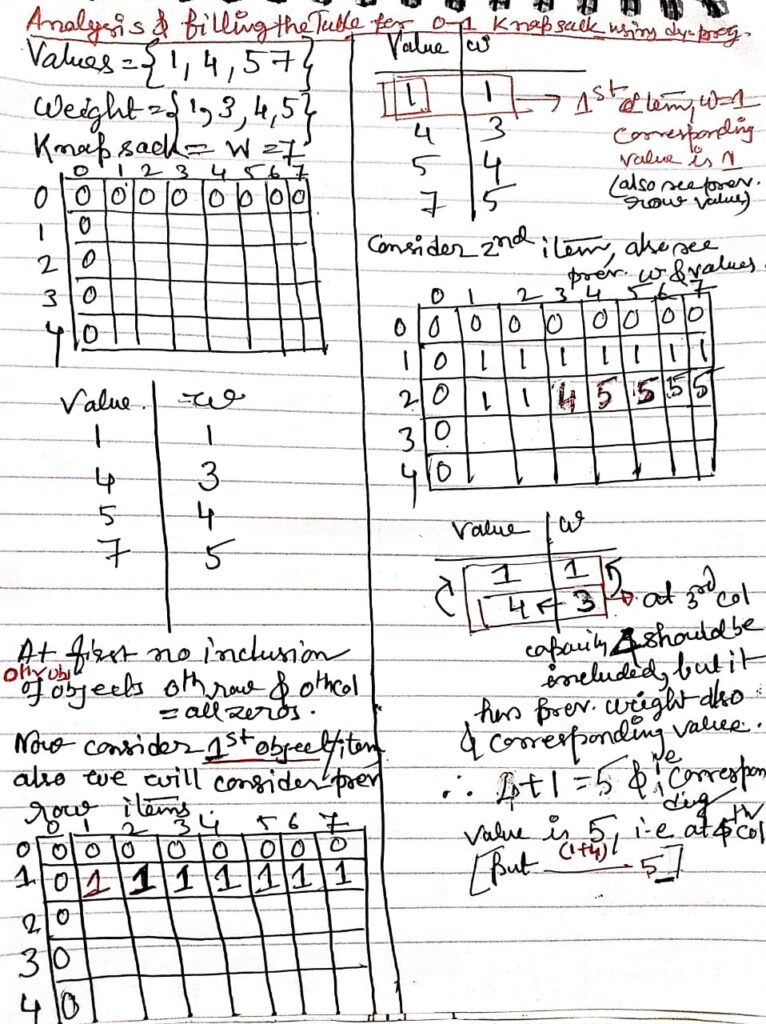 Analysis & filling the Table for 0-1 Knapsack using dy. prog.
Values = {1, 4, 5 7}
Weight = {1, 3, 4, 5}
Knapsack = W = 7
0 1 2 3 4 5 6 7
0 0 0 0 0 0 0 0 0
1 0
2 0
3 0
4 0
Value w
1 1
4 3
5 4
7 5
At first no inclusion
0th obj
of objects 0th row & 0th col
= all zeros.
Now consider 1st object/item
also we will consider prev
row items.
0 1 2 3 4 5 6 7
0 0 0 0 0 0 0 0 0
1 0 1 1 1 1 1 1 1
2 0
3 0
4 0
Value w
1 1 → 1st item, w=1
4 3 corresponding
5 4 value is 1
7 5 (also see prev.
row value)
Consider 2nd item, also see
prev. w & values.
0 1 2 3 4 5 6 7
0 0 0 0 0 0 0 0 0
1 0 1 1 1 1 1 1 1
2 0 1 1 4 5 5 5 5
3 0
4 0
Value w
1 1
4 ← 3 → at 3rd col
capacity 4 should be
included, but it
has prev. weight also
& corresponding value.
∴ 4+1=5 & ie correspon
ding
value is 5, i-e at 4th col
[But (1+4) 5]